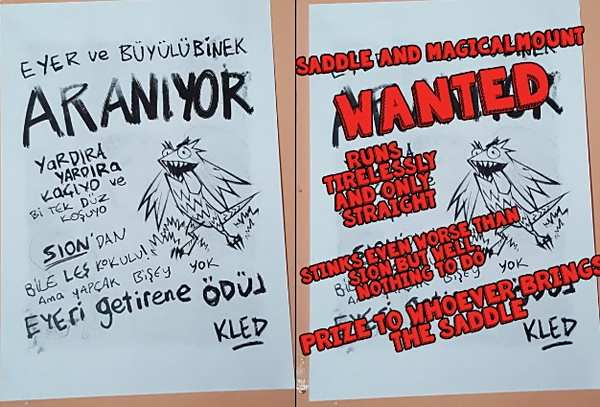 EYER ve BÜYÜLÜBİNEK
ARANIYOR
YARDIRA
YARDIRA
KAÇIYO ve
Bİ TEK DÜZ
KOŞUYO
SION'DAN
BİLE LEŞ KOKULU!
Ama YAPÇAK BİŞEY YOK
EYERİ getirene ÖDÜL
KLED
SADDLE AND MAGICALMOUNT
WANTED
RUNS
TIRELESSLY
AND ONLY
STRAIGHT
STINKS EVEN WORSE THAN
SION BUT WELL,
NOTHING TO DO
YOK
PRIZE TO WHOEVER BRINGS
THE SADDLE
KLED